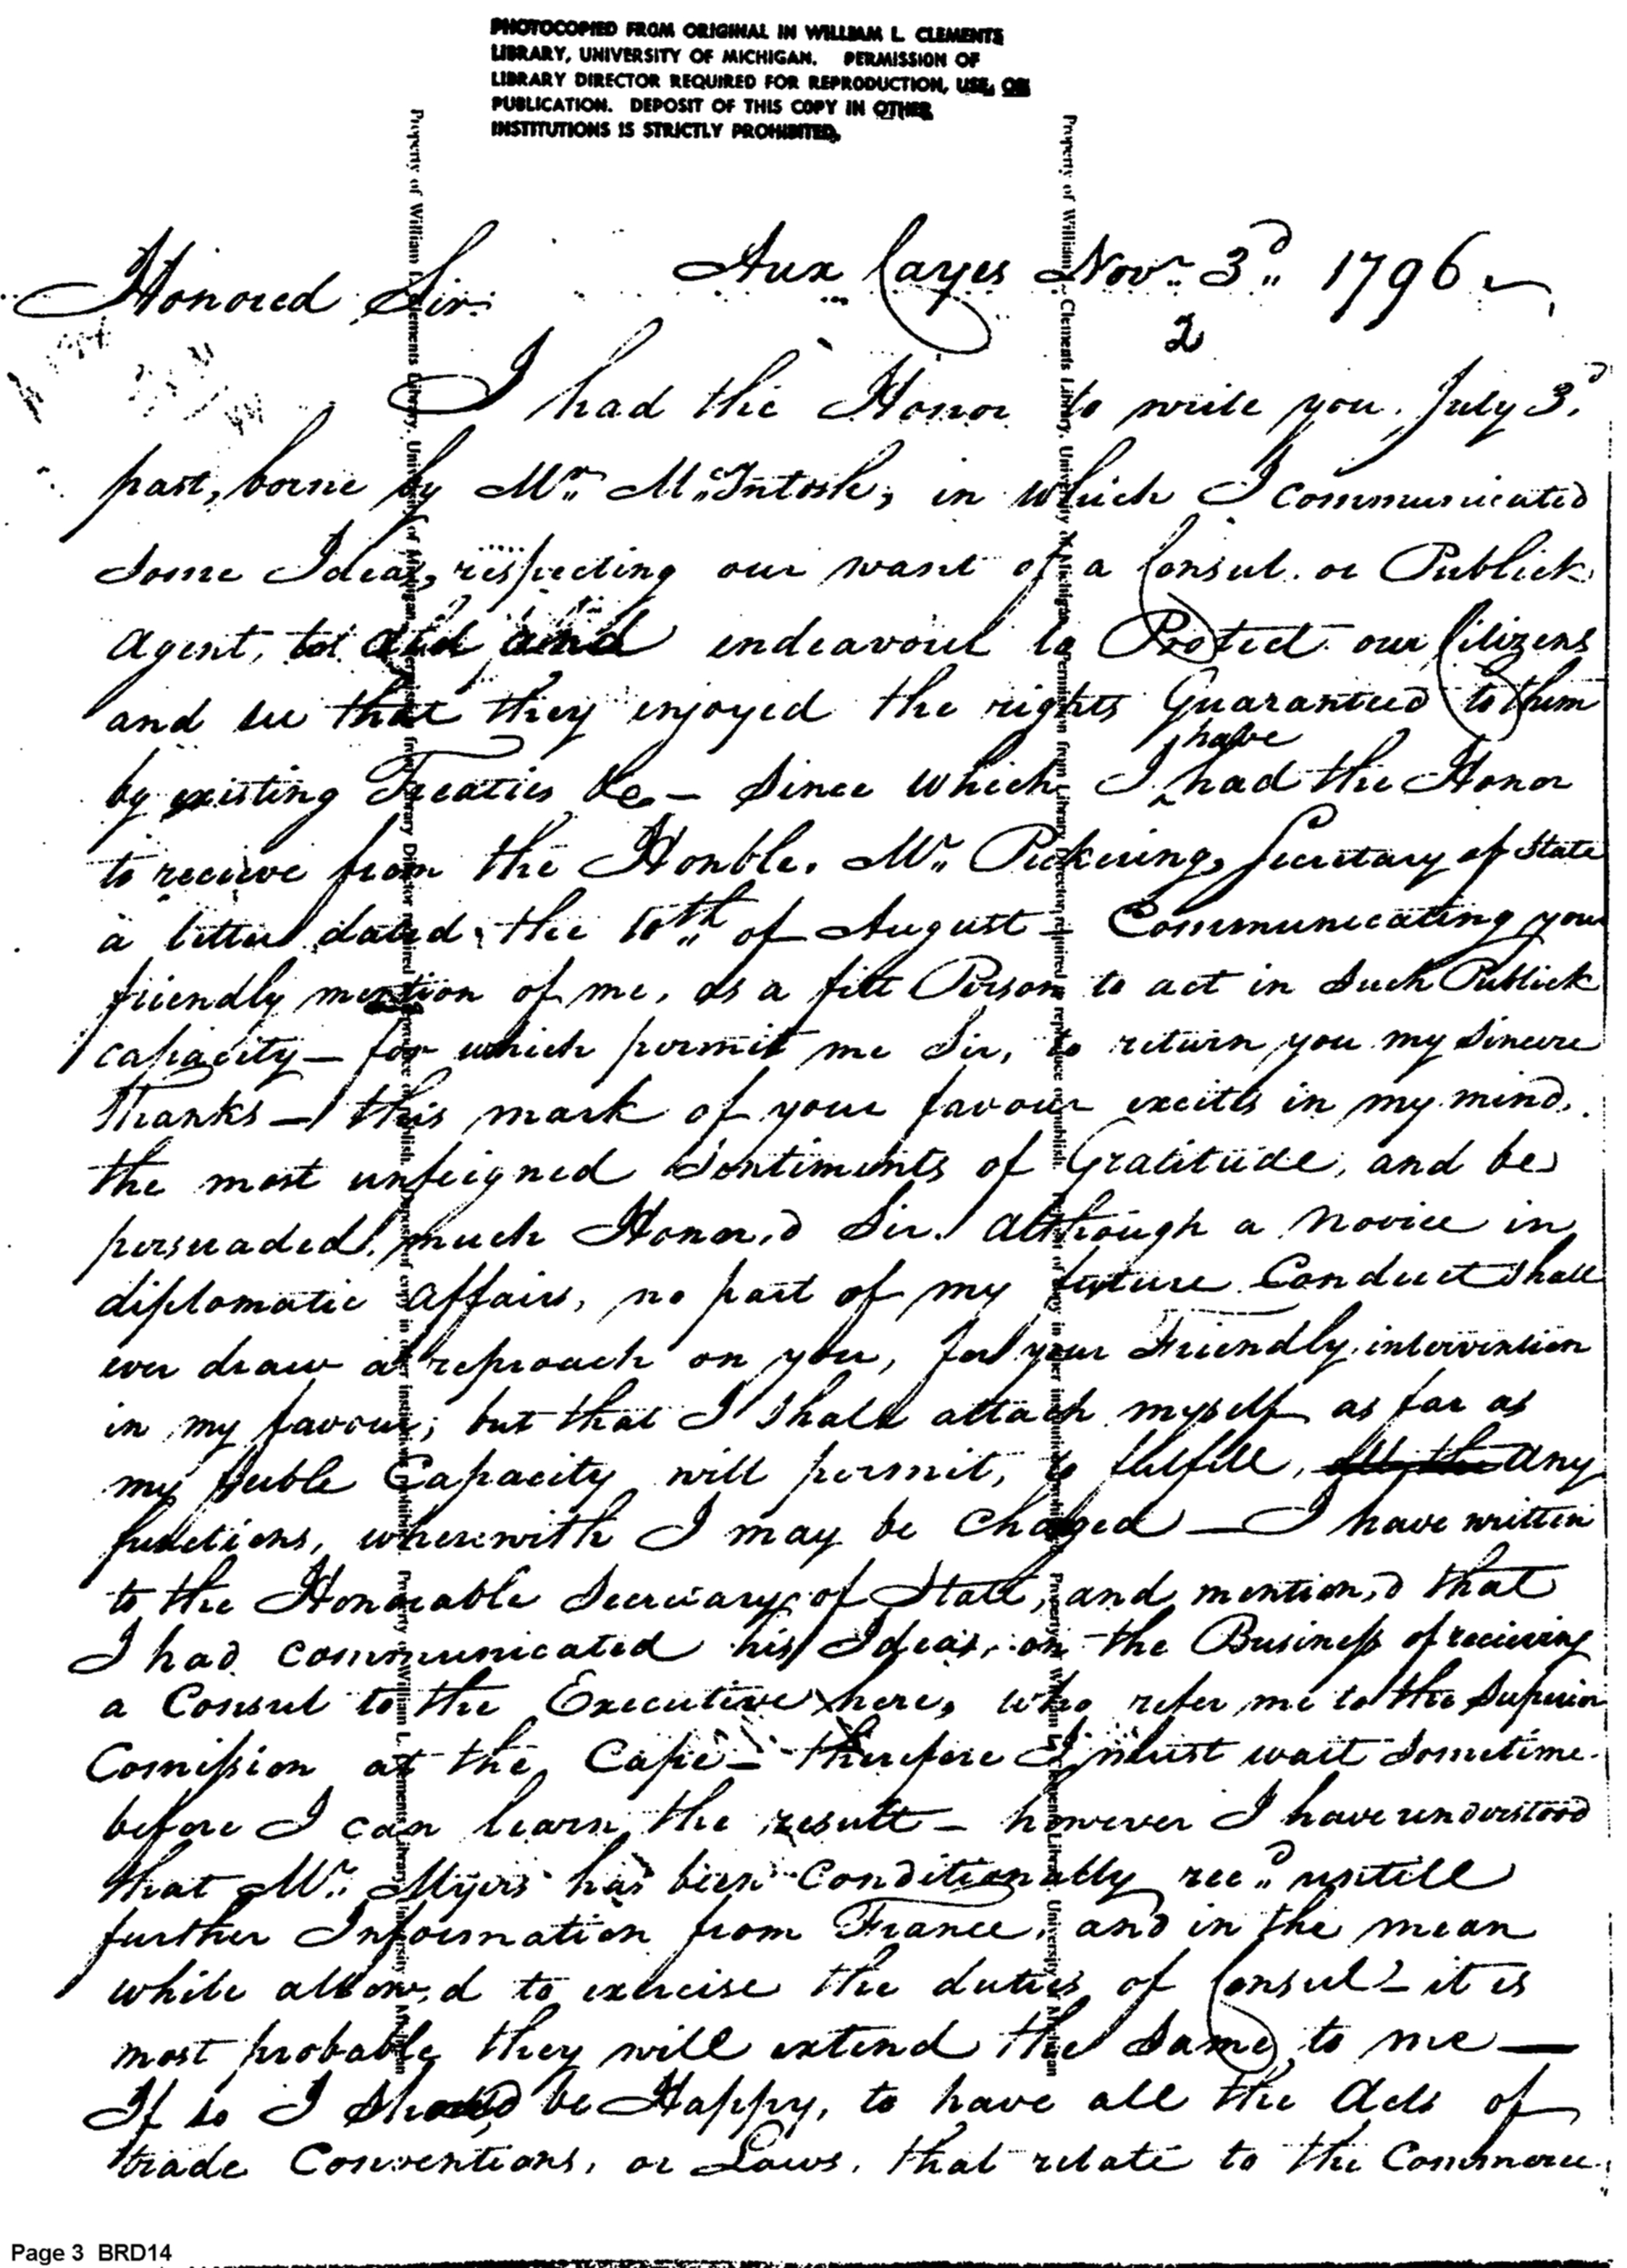 PHOTOCOPIED FROM ORIGINAL IN WILLIAM L. CLEMENTS
LIBRARY, UNIVERSITY OF MICHIGAN. PERMISSION OF
LIBRARY DIRECTOR REQUIRED FOR REPRODUCTION, USE, OR
PUBLICATION. DEPOSIT OF THIS COPY IN OTHER
INSTITUTIONS IS STRICTLY PROHIBITED.
Aux Cayes Novr. 3d. 1796
Honored Sir
2
I had the Honor to write you July 3d.
past, borne by Mr. McIntosh, in which I communicated
some Ideas, respecting our want of a Consul or Publick
agent, to aid and endeavour to Protect our Citizens
and see that they enjoyed the rights Guaranteed to them
by existing Treaties &c - Since which I ^have had the Honor
to recieve from the Honble. Mr. Pickering, Secretary of State
a letter dated the 10th of August - Communicating your
friendly mention of me, as a fitt Person to act in Such Publick
capacity - for which permit me Sir, to return you my Sincere
Thanks - this mark of your favour excites in my mind
the most unfeigned Sentiments of Gratitude, and be
persuaded much Honor,d Sir. although a Novice in
diplomatic affairs, no part of my future Conduct Shall
ever draw a reproach on you, for your Friendly intervention
in my favour; but that I Shall attach myself as far as
my feeble Capacity will permit, to fulfill, all the any
functions, wherewith I may be Charged - I have written
to the Honorable Secretary of State, and mention,d that
I had communicated his Ideas, on the Business of recieving
a Consul to the Executive here, who refer me to the Superior
Comission at the Cape - therefore I must wait Sometime
before I can learn the result - however I have understood
that Mr. Myers has been Conditionally rec.d untill
further Information from France, and in the mean
while allow,d to exercise the duties of Consul - it is
most probable they will extend the Same to me -
If so I Should be Happy, to have all the Acts of
trade Conventions, or Laws, that relate to the Commerce
Property of William L. Clements Library, University of Michigan. Permission from Library Director required to reproduce or publish. Deposit of copy in other institutions prohibited.
Property of William L. Clements Library, University of Michigan
Property of William L. Clements Library, University of Michigan. Permission from Library Director required to reproduce or publish. Deposit of copy in other institutions prohibited.
Property of William L. Clements Library, University of Michigan
Page 3 BRD14